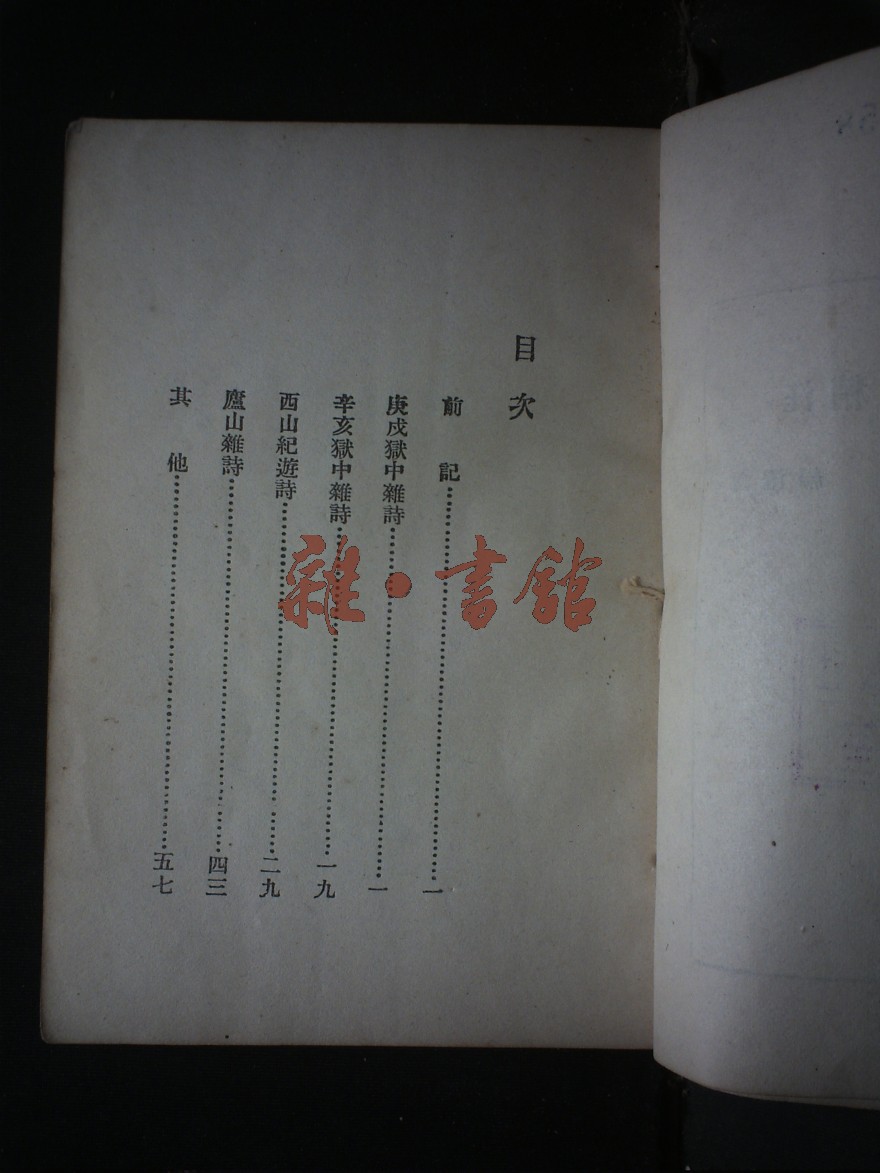 目次
前記………一
庚戌獄中雜詩………一
辛亥獄中雜詩………一九
西山紀遊詩………二九
廬山雜詩………四三
其他………五七
雜·書館